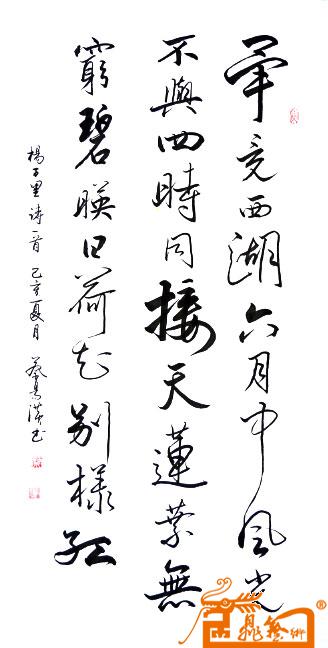 畢竟西湖六月中風光
不與四時同接天蓮葉無
窮碧映日荷花别樣紅
楊万里诗一首 亥夏月 蔡 书